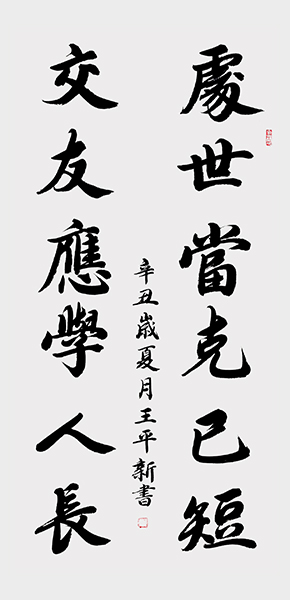 處世當克己短
交友應學人長
辛丑歲夏月王平新書